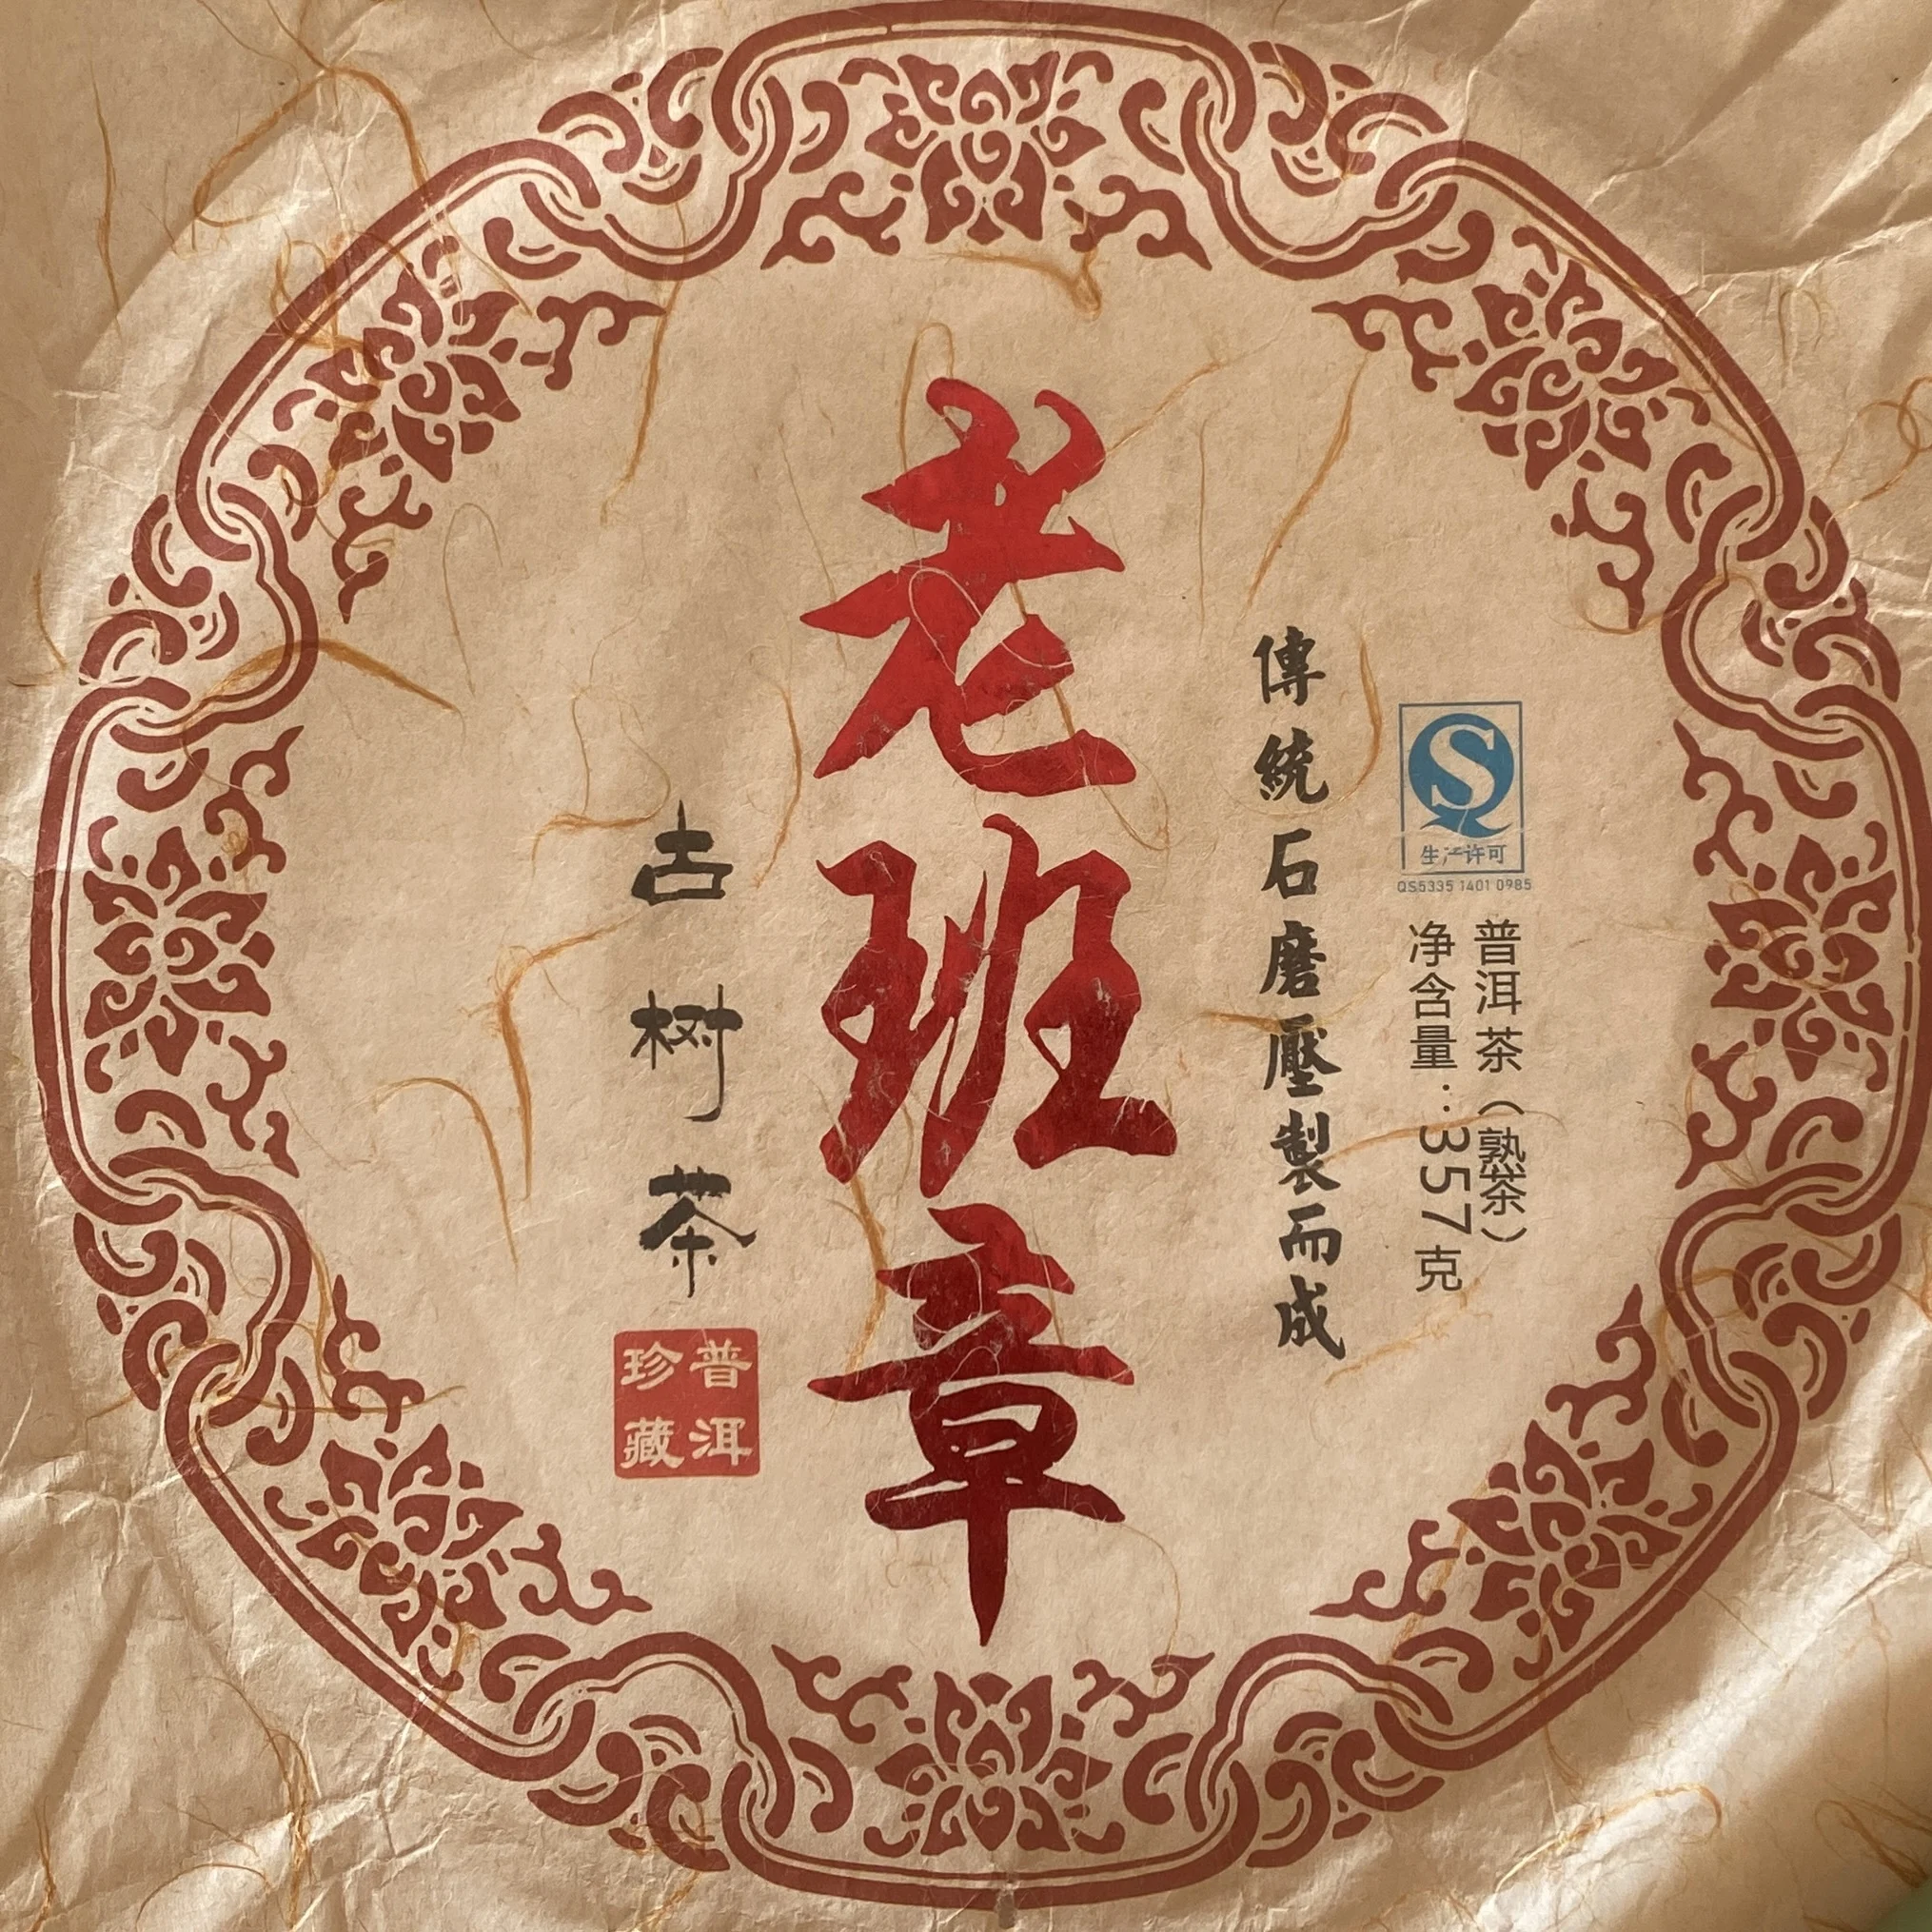 普洱茶（熟茶）
净含量：357克
生产许可
QS5335 1401 0985
傳統石磨壓製而成
老班章
古树茶
普洱
珍藏